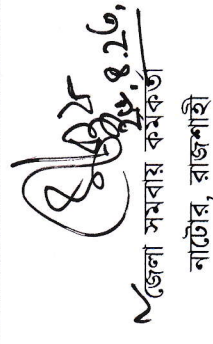 জেলা সমবায় কর্মকর্তা
নাটোর, রাজশাহী